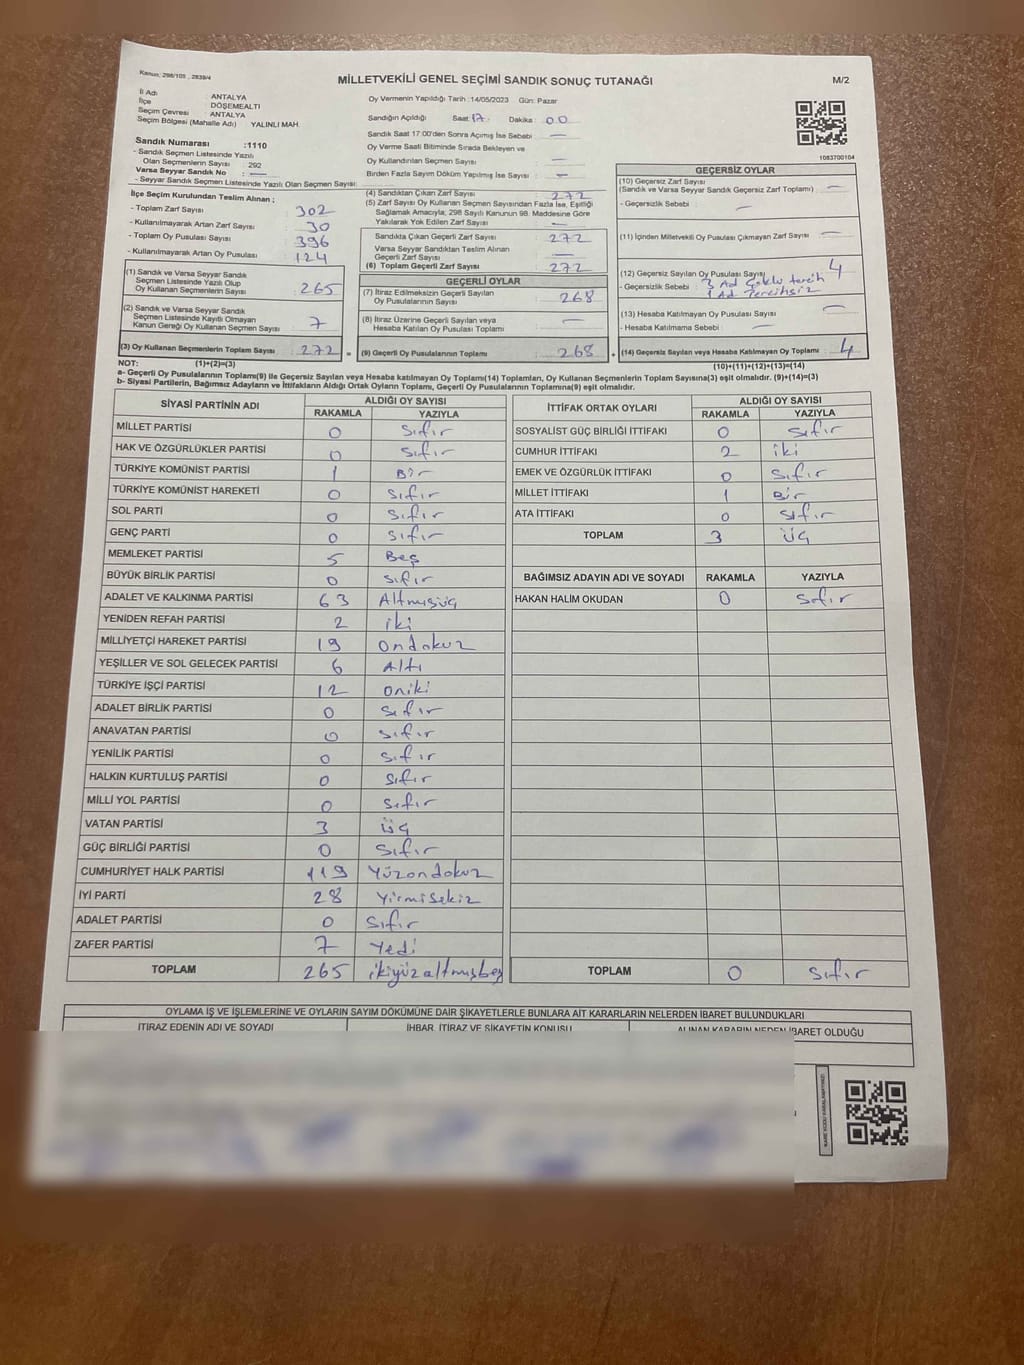 Kanun: 298/105 , 2839/4
MİLLETVEKİLİ GENEL SEÇİMİ SANDIK SONUÇ TUTANAĞI
M/2
İl Adı ANTALYA
İlçe DÖŞEMEALTI
Seçim Çevresi ANTALYA
Seçim Bölgesi (Mahalle Adı) YALINLI MAH.
Oy Vermenin Yapıldığı Tarih :14/05/2023 Gün: Pazar
Sandığın Açıldığı Saat: 17 Dakika: 00
Sandık Saat 17:00'den Sonra Açımış İse Sebebi —
Oy Verme Saati Bitiminde Sırada Bekleyen ve
Oy Kullandırılan Seçmen Sayısı : —
Birden Fazla Sayım Döküm Yapılmış İse Sayısı : —
1083700104
Sandık Numarası :1110
- Sandık Seçmen Listesinde Yazılı
Olan Seçmenlerin Sayısı : 292
Varsa Seyyar Sandık No : —
- Seyyar Sandık Seçmen Listesinde Yazılı Olan Seçmen Sayısı:
İlçe Seçim Kurulundan Teslim Alınan :
- Toplam Zarf Sayısı : 302
- Kullanılmayarak Artan Zarf Sayısı : 30
- Toplam Oy Pusulası Sayısı : 396
- Kullanılmayarak Artan Oy Pusulası : 124
(1) Sandık ve Varsa Seyyar Sandık
Seçmen Listesinde Yazılı Olup
Oy Kullanan Seçmenlerin Sayısı : 265
(2) Sandık ve Varsa Seyyar Sandık
Seçmen Listesinde Kayıtlı Olmayan
Kanun Gereği Oy Kullanan Seçmen Sayısı : 7
(3) Oy Kullanan Seçmenlerin Toplam Sayısı : 272 =
(4) Sandıktan Çıkan Zarf Sayısı : 272
(5) Zarf Sayısı Oy Kullanan Seçmen Sayısından Fazla İse, Eşitliği
Sağlamak Amacıyla, 298 Sayılı Kanunun 98. Maddesine Göre
Yakılarak Yok Edilen Zarf Sayısı : —
Sandıkta Çıkan Geçerli Zarf Sayısı : 272
Varsa Seyyar Sandıktan Teslim Alınan
Geçerli Zarf Sayısı : —
(6) Toplam Geçerli Zarf Sayısı : 272
GEÇERLİ OYLAR
(7) İtiraz Edilmeksizin Geçerli Sayılan
Oy Pusulalarının Sayısı : 268
(8) İtiraz Üzerine Geçerli Sayılan veya
Hesaba Katılan Oy Pusulası Toplamı : —
(9) Geçerli Oy Pusulalarının Toplamı : 268 +
GEÇERSİZ OYLAR
(10) Geçersiz Zarf Sayısı
(Sandık ve Varsa Seyyar Sandık Geçersiz Zarf Toplamı) : —
- Geçersizlik Sebebi : —
(11) İçinden Milletvekili Oy Pusulası Çıkmayan Zarf Sayısı : —
(12) Geçersiz Sayılan Oy Pusulası Sayısı : 4
- Geçersizlik Sebebi : 3 Ad Çoklu tercih
1 Ad Tercihsiz
(13) Hesaba Katılmayan Oy Pusulası Sayısı : —
- Hesaba Katılmama Sebebi : —
(14) Geçersiz Sayılan veya Hesaba Katılmayan Oy Toplamı : 4
NOT: (1)+(2)=(3)
(10)+(11)+(12)+(13)=(14)
a- Geçerli Oy Pusulalarının Toplamı(9) ile Geçersiz Sayılan veya Hesaba katılmayan Oy Toplam(14) Toplamları, Oy Kullanan Seçmenlerin Toplam Sayısına(3) eşit olmalıdır. (9)+(14)=(3)
b- Siyasi Partilerin, Bağımsız Adayların ve İttifakların Aldığı Ortak Oyların Toplamı, Geçerli Oy Pusulalarının Toplamına(9) eşit olmalıdır.
SİYASİ PARTİNİN ADI ALDIĞI OY SAYISI
RAKAMLA YAZIYLA
MİLLET PARTİSİ 0 Sıfır
HAK VE ÖZGÜRLÜKLER PARTİSİ 0 Sıfır
TÜRKİYE KOMÜNİST PARTİSİ 1 Bir
TÜRKİYE KOMÜNİST HAREKETİ 0 Sıfır
SOL PARTİ 0 Sıfır
GENÇ PARTİ 0 Sıfır
MEMLEKET PARTİSİ 5 Beş
BÜYÜK BİRLİK PARTİSİ 0 Sıfır
ADALET VE KALKINMA PARTİSİ 63 Altmışüç
YENİDEN REFAH PARTİSİ 2 iki
MİLLİYETÇİ HAREKET PARTİSİ 19 ondokuz
YEŞİLLER VE SOL GELECEK PARTİSİ 6 Altı
TÜRKİYE İŞÇİ PARTİSİ 12 oniki
ADALET BİRLİK PARTİSİ 0 Sıfır
ANAVATAN PARTİSİ 0 Sıfır
YENİLİK PARTİSİ 0 Sıfır
HALKIN KURTULUŞ PARTİSİ 0 Sıfır
MİLLİ YOL PARTİSİ 0 Sıfır
VATAN PARTİSİ 3 üç
GÜÇ BİRLİĞİ PARTİSİ 0 Sıfır
CUMHURİYET HALK PARTİSİ 119 Yüzondokuz
İYİ PARTİ 28 Yirmisekiz
ADALET PARTİSİ 0 Sıfır
ZAFER PARTİSİ 7 Yedi
TOPLAM 265 ikiyüzaltmışbeş
İTTİFAK ORTAK OYLARI ALDIĞI OY SAYISI
RAKAMLA YAZIYLA
SOSYALİST GÜÇ BİRLİĞİ İTTİFAKI 0 Sıfır
CUMHUR İTTİFAKI 2 iki
EMEK VE ÖZGÜRLÜK İTTİFAKI 0 Sıfır
MİLLET İTTİFAKI 1 Bir
ATA İTTİFAKI 0 Sıfır
TOPLAM 3 üç
BAĞIMSIZ ADAYIN ADI VE SOYADI RAKAMLA YAZIYLA
HAKAN HALİM OKUDAN 0 Sıfır
TOPLAM 0 Sıfır
OYLAMA İŞ VE İŞLEMLERİNE VE OYLARIN SAYIM DÖKÜMÜNE DAİR ŞİKAYETLERLE BUNLARA AİT KARARLARIN NELERDEN İBARET BULUNDUKLARI
İTİRAZ EDENİN ADI VE SOYADI İHBAR, İTİRAZ VE ŞİKAYETİN KONUSU ALINAN KARARIN NEDEN İBARET OLDUĞU